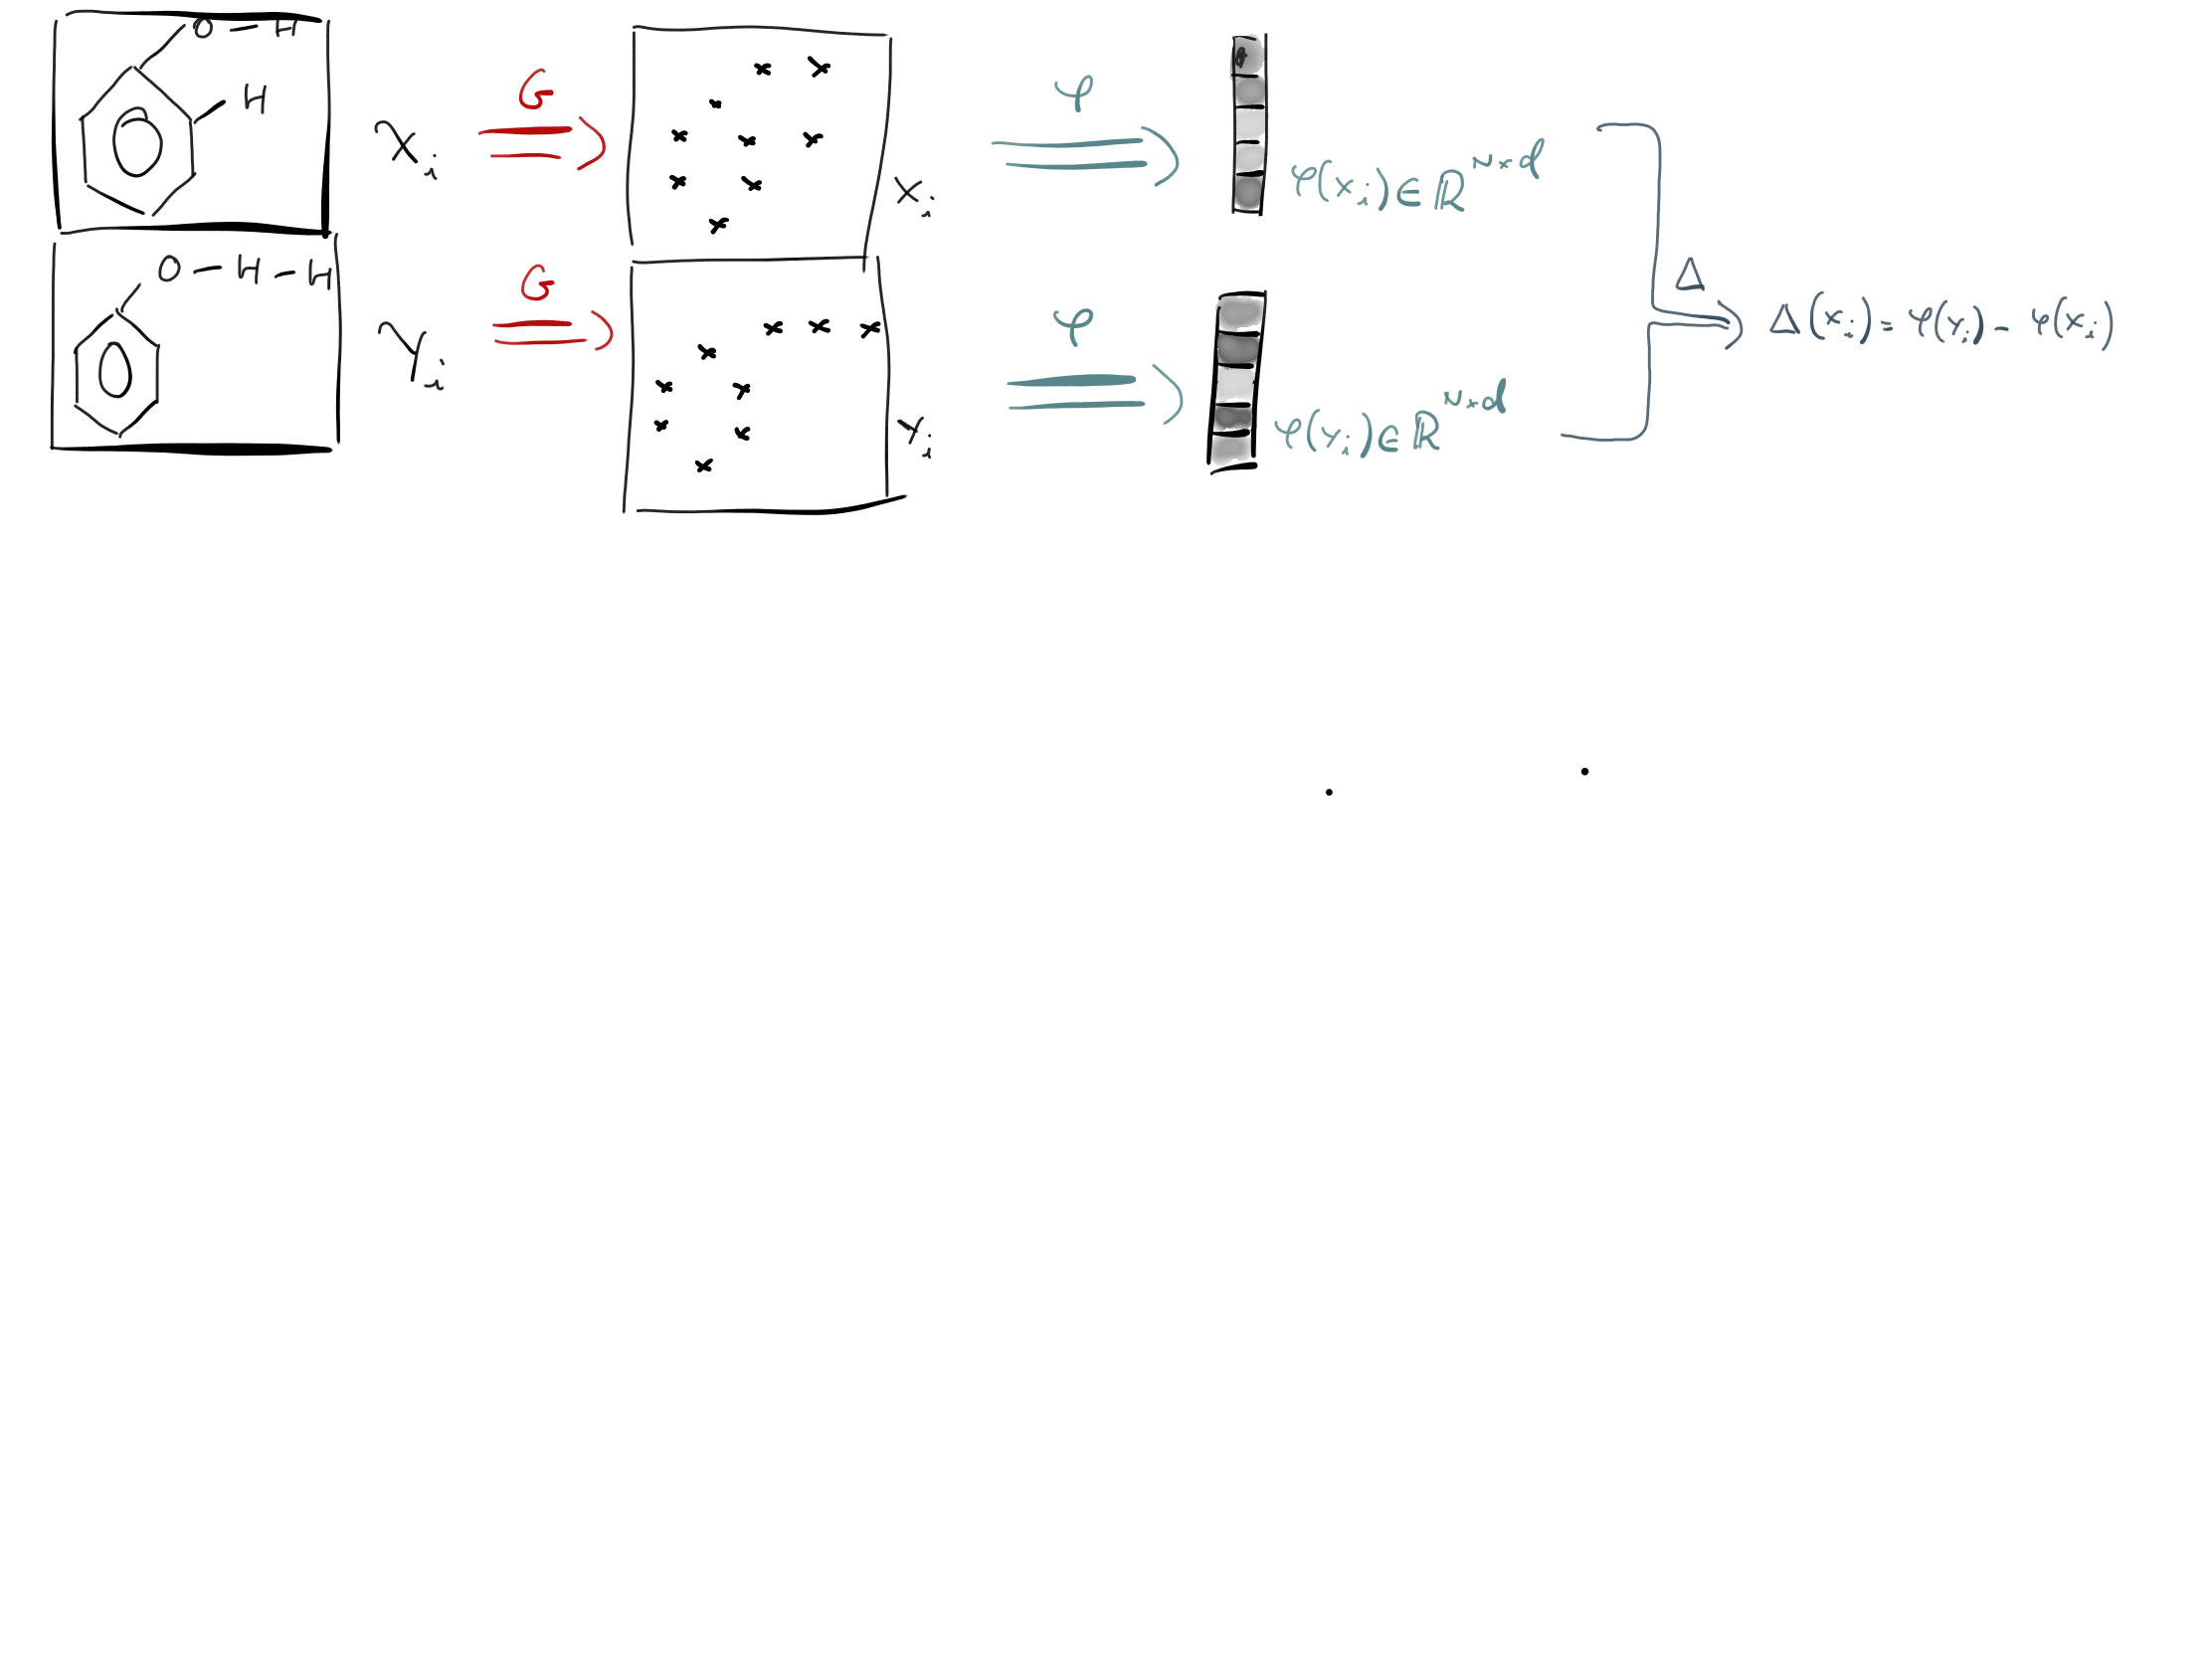 O – H
H
𝒳ᵢ
G
Xᵢ
φ
φ(Xᵢ) ∈ ℝᴺˣᵈ
O – H – H
𝒴ᵢ
G
Yᵢ
φ
φ(Yᵢ) ∈ ℝᴺˣᵈ
Δ
Δ(Xᵢ) = φ(Yᵢ) – φ(Xᵢ)